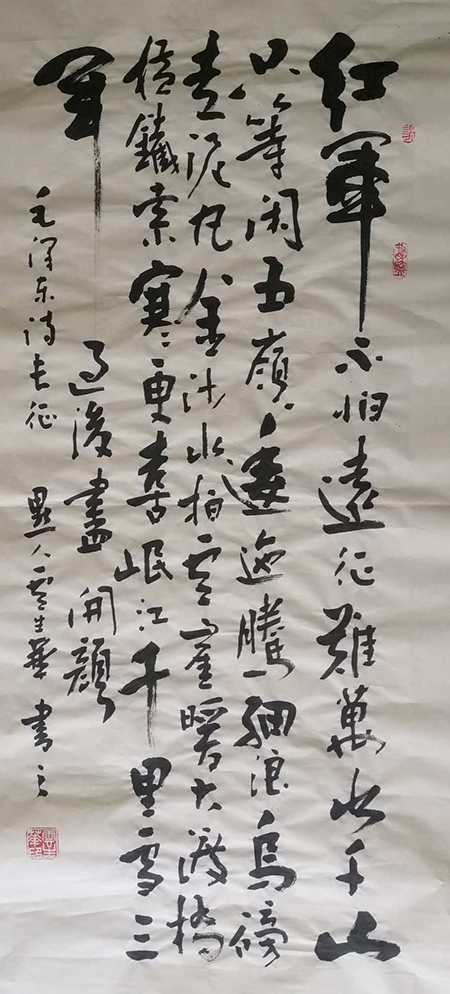 红軍不怕遠征難萬水千山
只等闲五嶺逶迤騰細浪烏磅
走泥丸金沙水拍雲崖暖大渡橋
横鐵索寒更喜岷江千里雪三
軍過後盡開顔
毛泽东诗长征
人雲生華書之